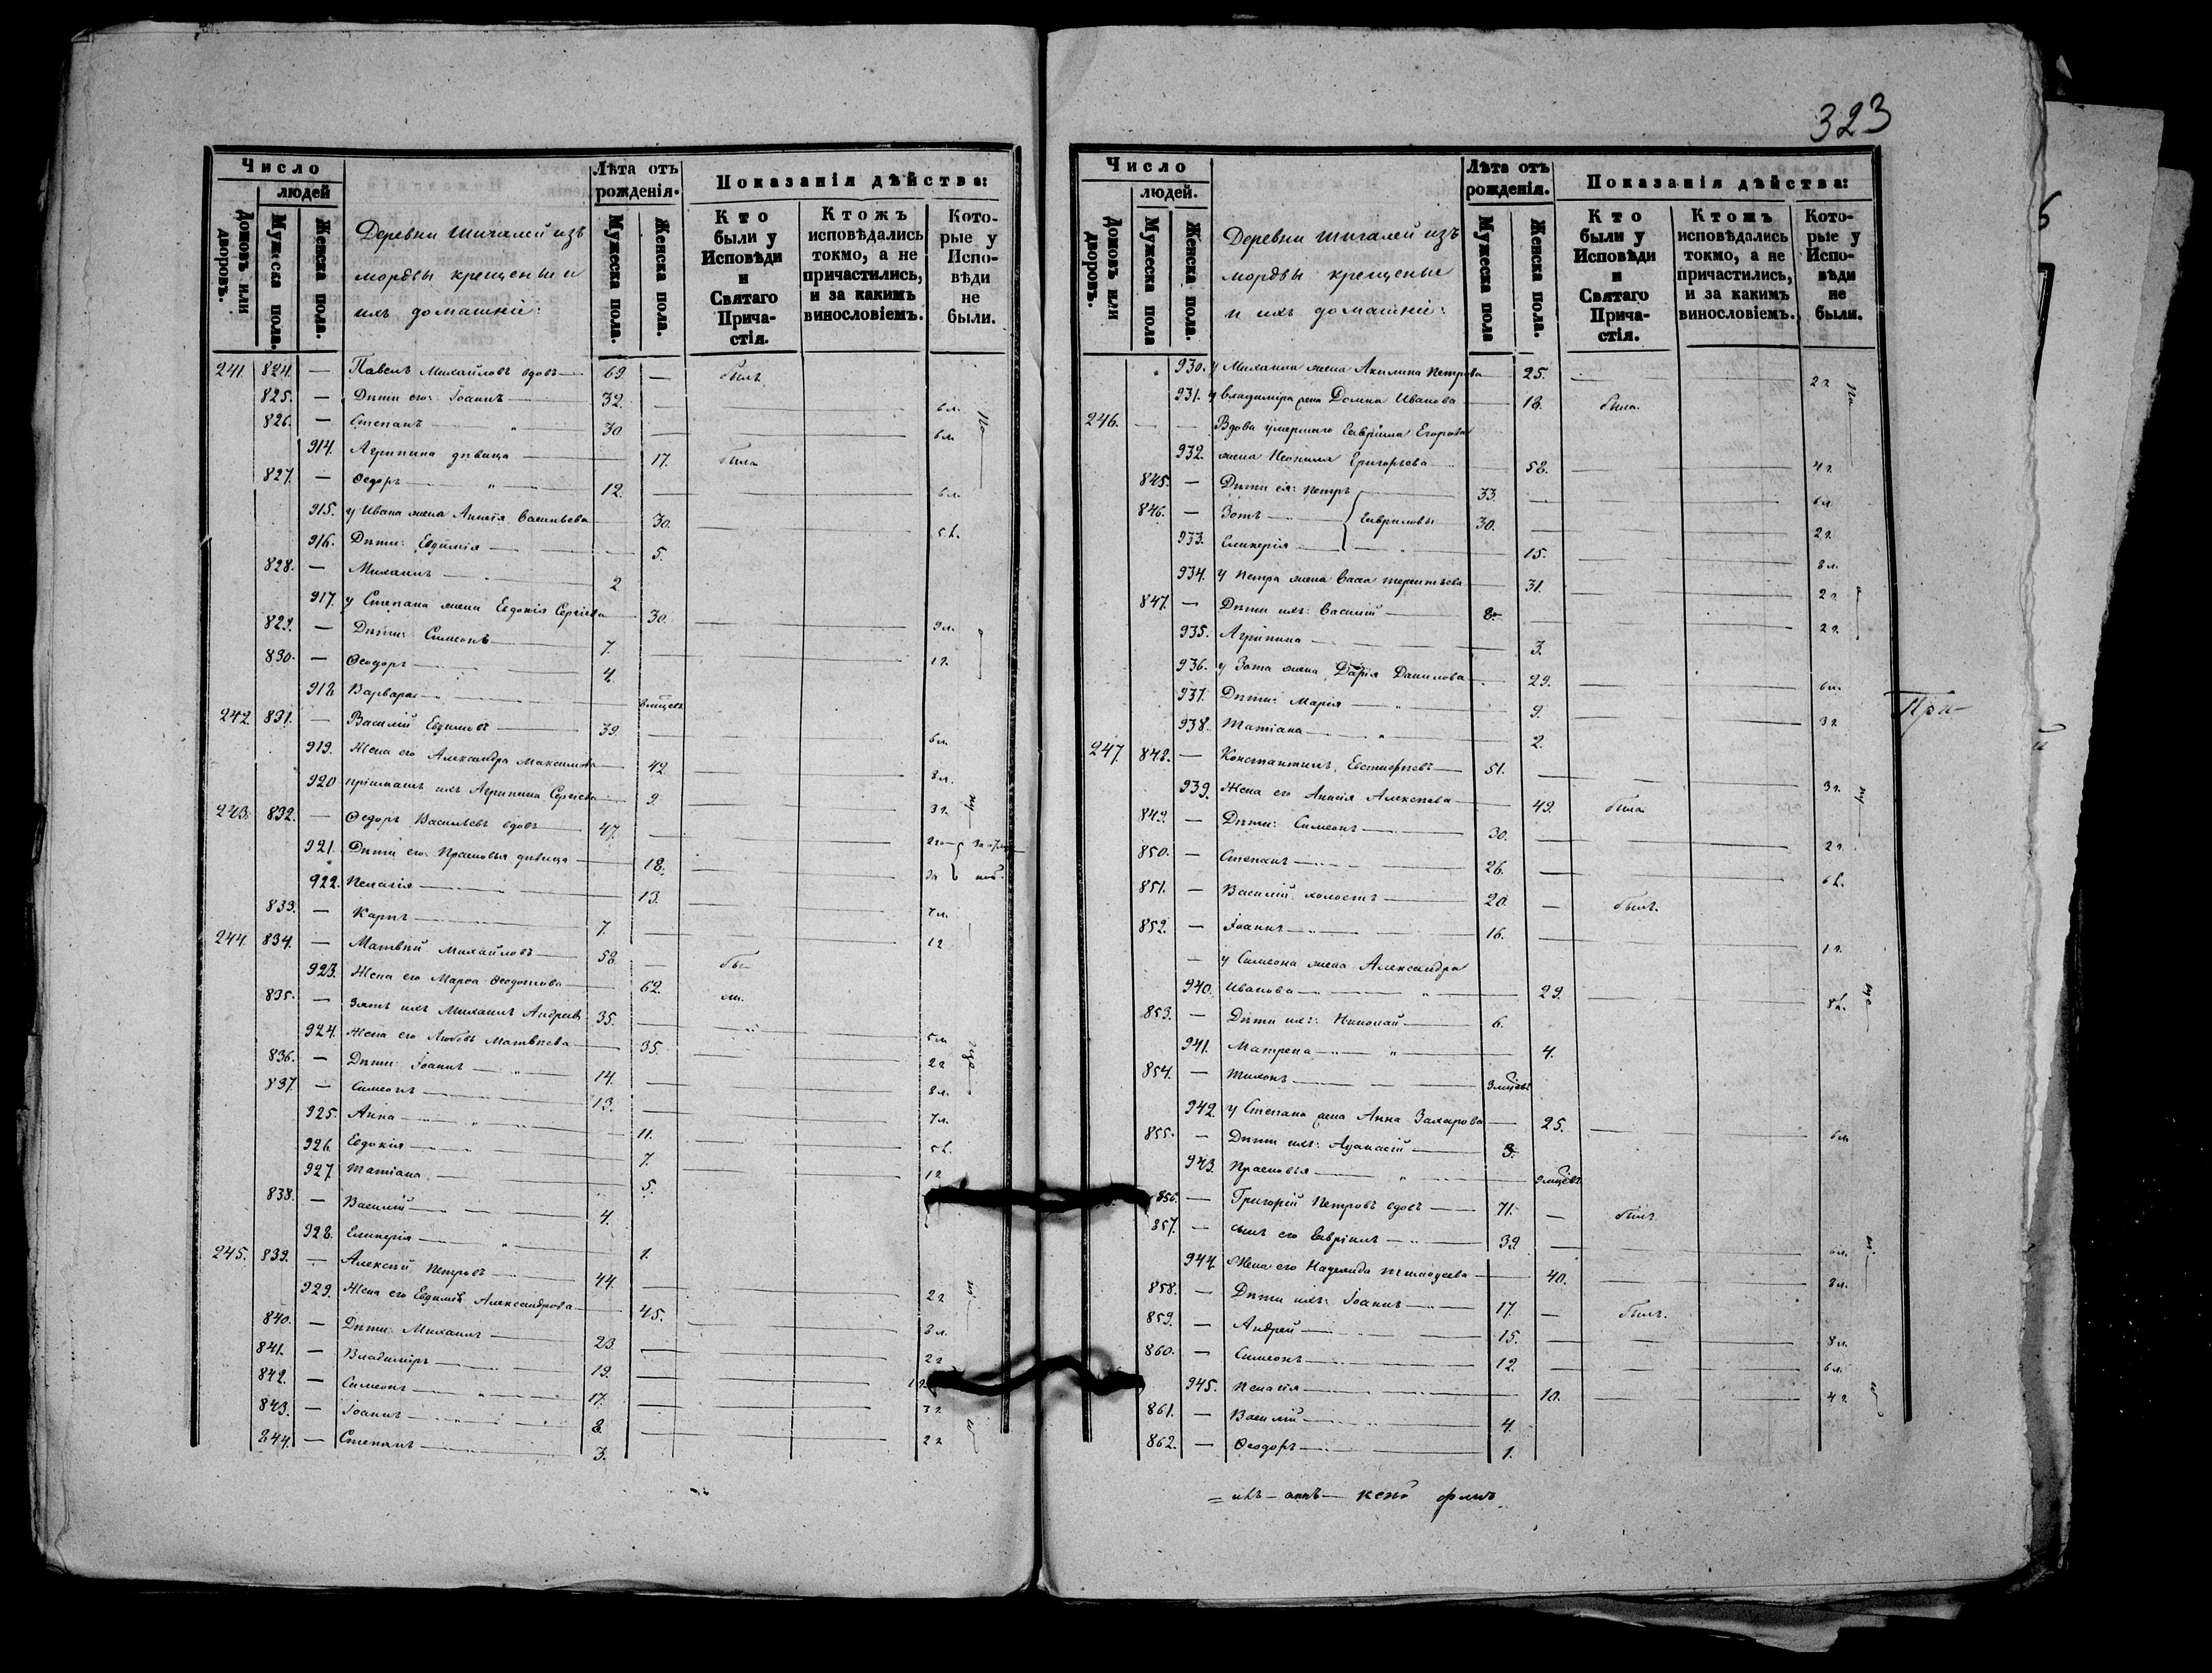 323
Число
людей
Домовъ или дворовъ.
Мужеска пола.
Женска пола.
Деревни Шигалей изъ
мордвы крещеные и
ихъ домашніе:
Лѣта отъ
рожденія.
Мужеска пола.
Женска пола.
Показанія дѣйства:
Кто были у Исповѣди и Святаго Прича-стія.
Ктожъ исповѣдались токмо, а не причастились, и за какимъ винословіемъ.
Кото-рые у Испо-вѣди не были.
241. 824. — Павелъ Михайловъ вдовъ 69. — былъ
825. — Дѣти его: Іоаннъ 32. — 6 л.
826. — Степанъ 30. — 6 л.
914. Агрипина дѣвица 17. была
827. — Ѳедоръ 12. — 6 л.
915. у Ивана жена Анисія Васильева 30. 5 л.
916. Дѣти: Евдимія 5.
828. — Михаилъ 2
917. у Степана жена Евдокія Сергіева 30. 9 л.
829. — Дѣти: Симеонъ 7. 1 г.
830. — Ѳеодоръ 4.
918. Варвара
242. 831. — Василій Евдимовъ 39. 6 л.
919. Жена его Александра Максимова 42. 8 л.
920 ихъ Агрипина Сергіева 9. 3 г.
243. 832. — Ѳедоръ Васильевъ вдовъ 47. —
921. Дѣти его: Прасковья дѣвица 18.
922. Пелагія 13. 7 л.
833. — Карпъ 7. 1 г
244. 834. — Матвѣй Михайловъ 58. — бы
923. Жена его Марѳа Ѳеодотова 62. ли.
835. — Зять ихъ Михаилъ Андреевъ 35. 5 л
924. Жена его Любовь Матвѣева 35. 2 г
836. — Дѣти: Іоаннъ 14. 8 л.
837. — Симеонъ 13. 7 л.
925. Анна 11. 5 л.
926. Евдокія 7. 1 г
927. Татіана 5.
838. — Василій 4.
928. Гликерія 1.
245. 839. — Алексѣй Петровъ 44. 2 г
929. Жена его Евдимія Александрова 45. 8 л.
840. — Дѣти: Михаилъ 23. 2 г
841. — Владиміръ 19.
842. — Симеонъ 17. 3 г.
843. — Іоаннъ 8. 2 г
844. — Степанъ 3.
Число
людей.
Домовъ или дворовъ.
Мужеска пола
Женска пола.
Деревни Шигалей изъ
мордвы крещеные
и ихъ домашніе:
Лѣта отъ
рожденія.
Мужеска пола
Женска пола.
Показанія дѣйства:
Кто были у Исповѣди и Святаго Прича-стія.
Ктожъ исповѣдались токмо, а не причастились, и за какимъ винословіемъ.
Кото-рые у Испо-вѣди не были.
930. у Михаила жена Акилина Петрова 25. 2 г.
931. у Владиміра жена Домна Иванова 18. была.
246. — — Вдова умершаго Гавріила Егорова
932. жена Неонила Григорьева 58. 4 г.
845. — Дѣти ея: Петръ 33. 6 л
846. — Зотъ Гавриловы 30. 2 г.
933. Гликерія 15. 8 л.
934. у Петра жена Васса Терентьева 31. 2 г
847. — Дѣти ихъ: Василій 8. 2 г.
935. Агрипина 3.
936. у Зота жена Дарія Данилова 29. 6 л.
937. Дѣти: Марія 9. 3 г.
938. Татіана 2.
247. 848. — Константинъ Евстифѣевъ 51. 3 г.
939. Жена его Анисія Алексѣева 49. была
849. — Дѣти: Симеонъ 30. 2 г.
850. — Степанъ 26. 6 л.
851. — Василій холостъ 20. — былъ.
852. — Іоаннъ 16. 1 г.
— у Симеона жена Александра
940. Иванова 29. 8 л.
853. — Дѣти ихъ: Николай 6.
941. Матрена 4.
854. — Тихонъ
942. у Степана жена Анна Захарова 25. 6 л
855. — Дѣти ихъ: Аѳанасій 3.
943. Прасковья
856. — Григорій Петровъ вдовъ 71. — былъ
857. — сынъ его Гавріилъ 39. — 6 л.
944. Жена его Надежда Тимоѳеева 40. 8 л.
858. — Дѣти ихъ: Іоаннъ 17. — былъ.
859. — Андрей 15. 8 л.
860. — Симеонъ 12. 6 л.
945. Пелагія 10. 4 г.
861. — Василій 4.
862. — Ѳеодоръ 1.
При-